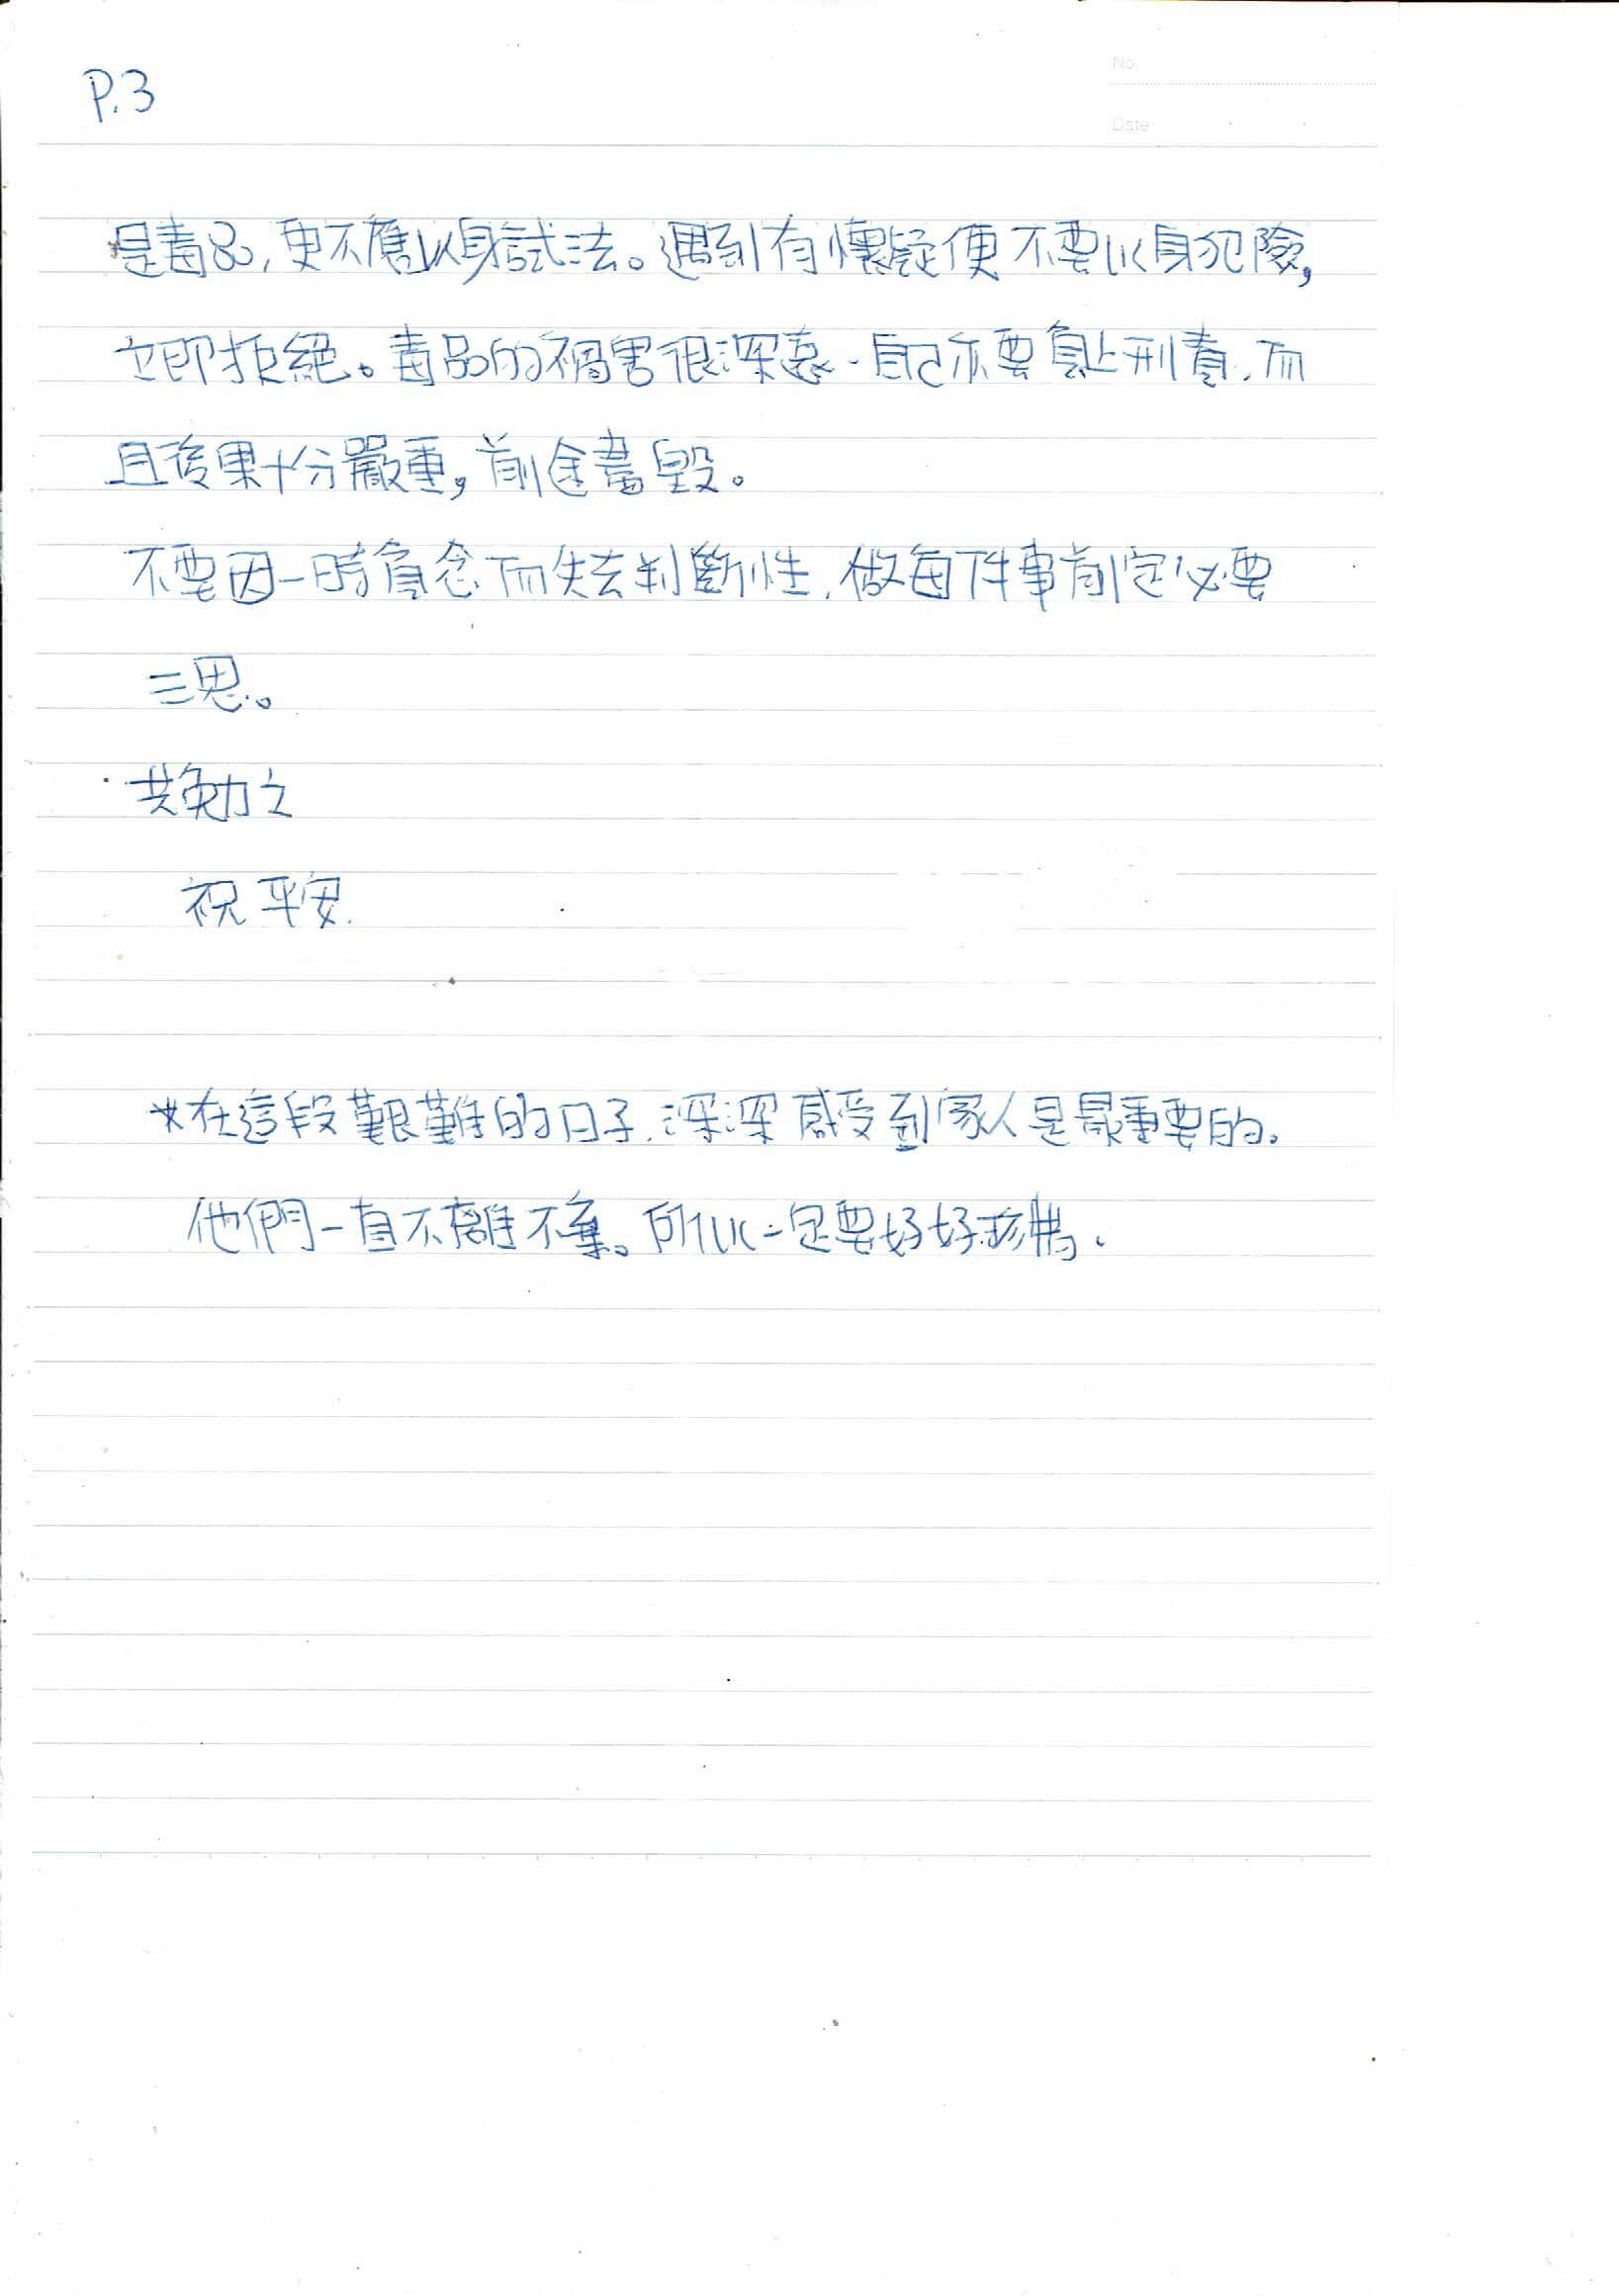 P.3
No.
Date
是毒品,更不應以身試法。遇到有懷疑便不要以身犯險,
立即拒絕。毒品的禍害很深遠.自己亦要負上刑責.而
且後果十分嚴重,前途盡毀。
不要因一時貪念而失去判斷性.做每件事前定必要
三思。
共勉之
祝平安.
*在這段艱難的日子.深深感受到家人是最重要的.
他們一直不離不棄。所以一定要好好珍惜.